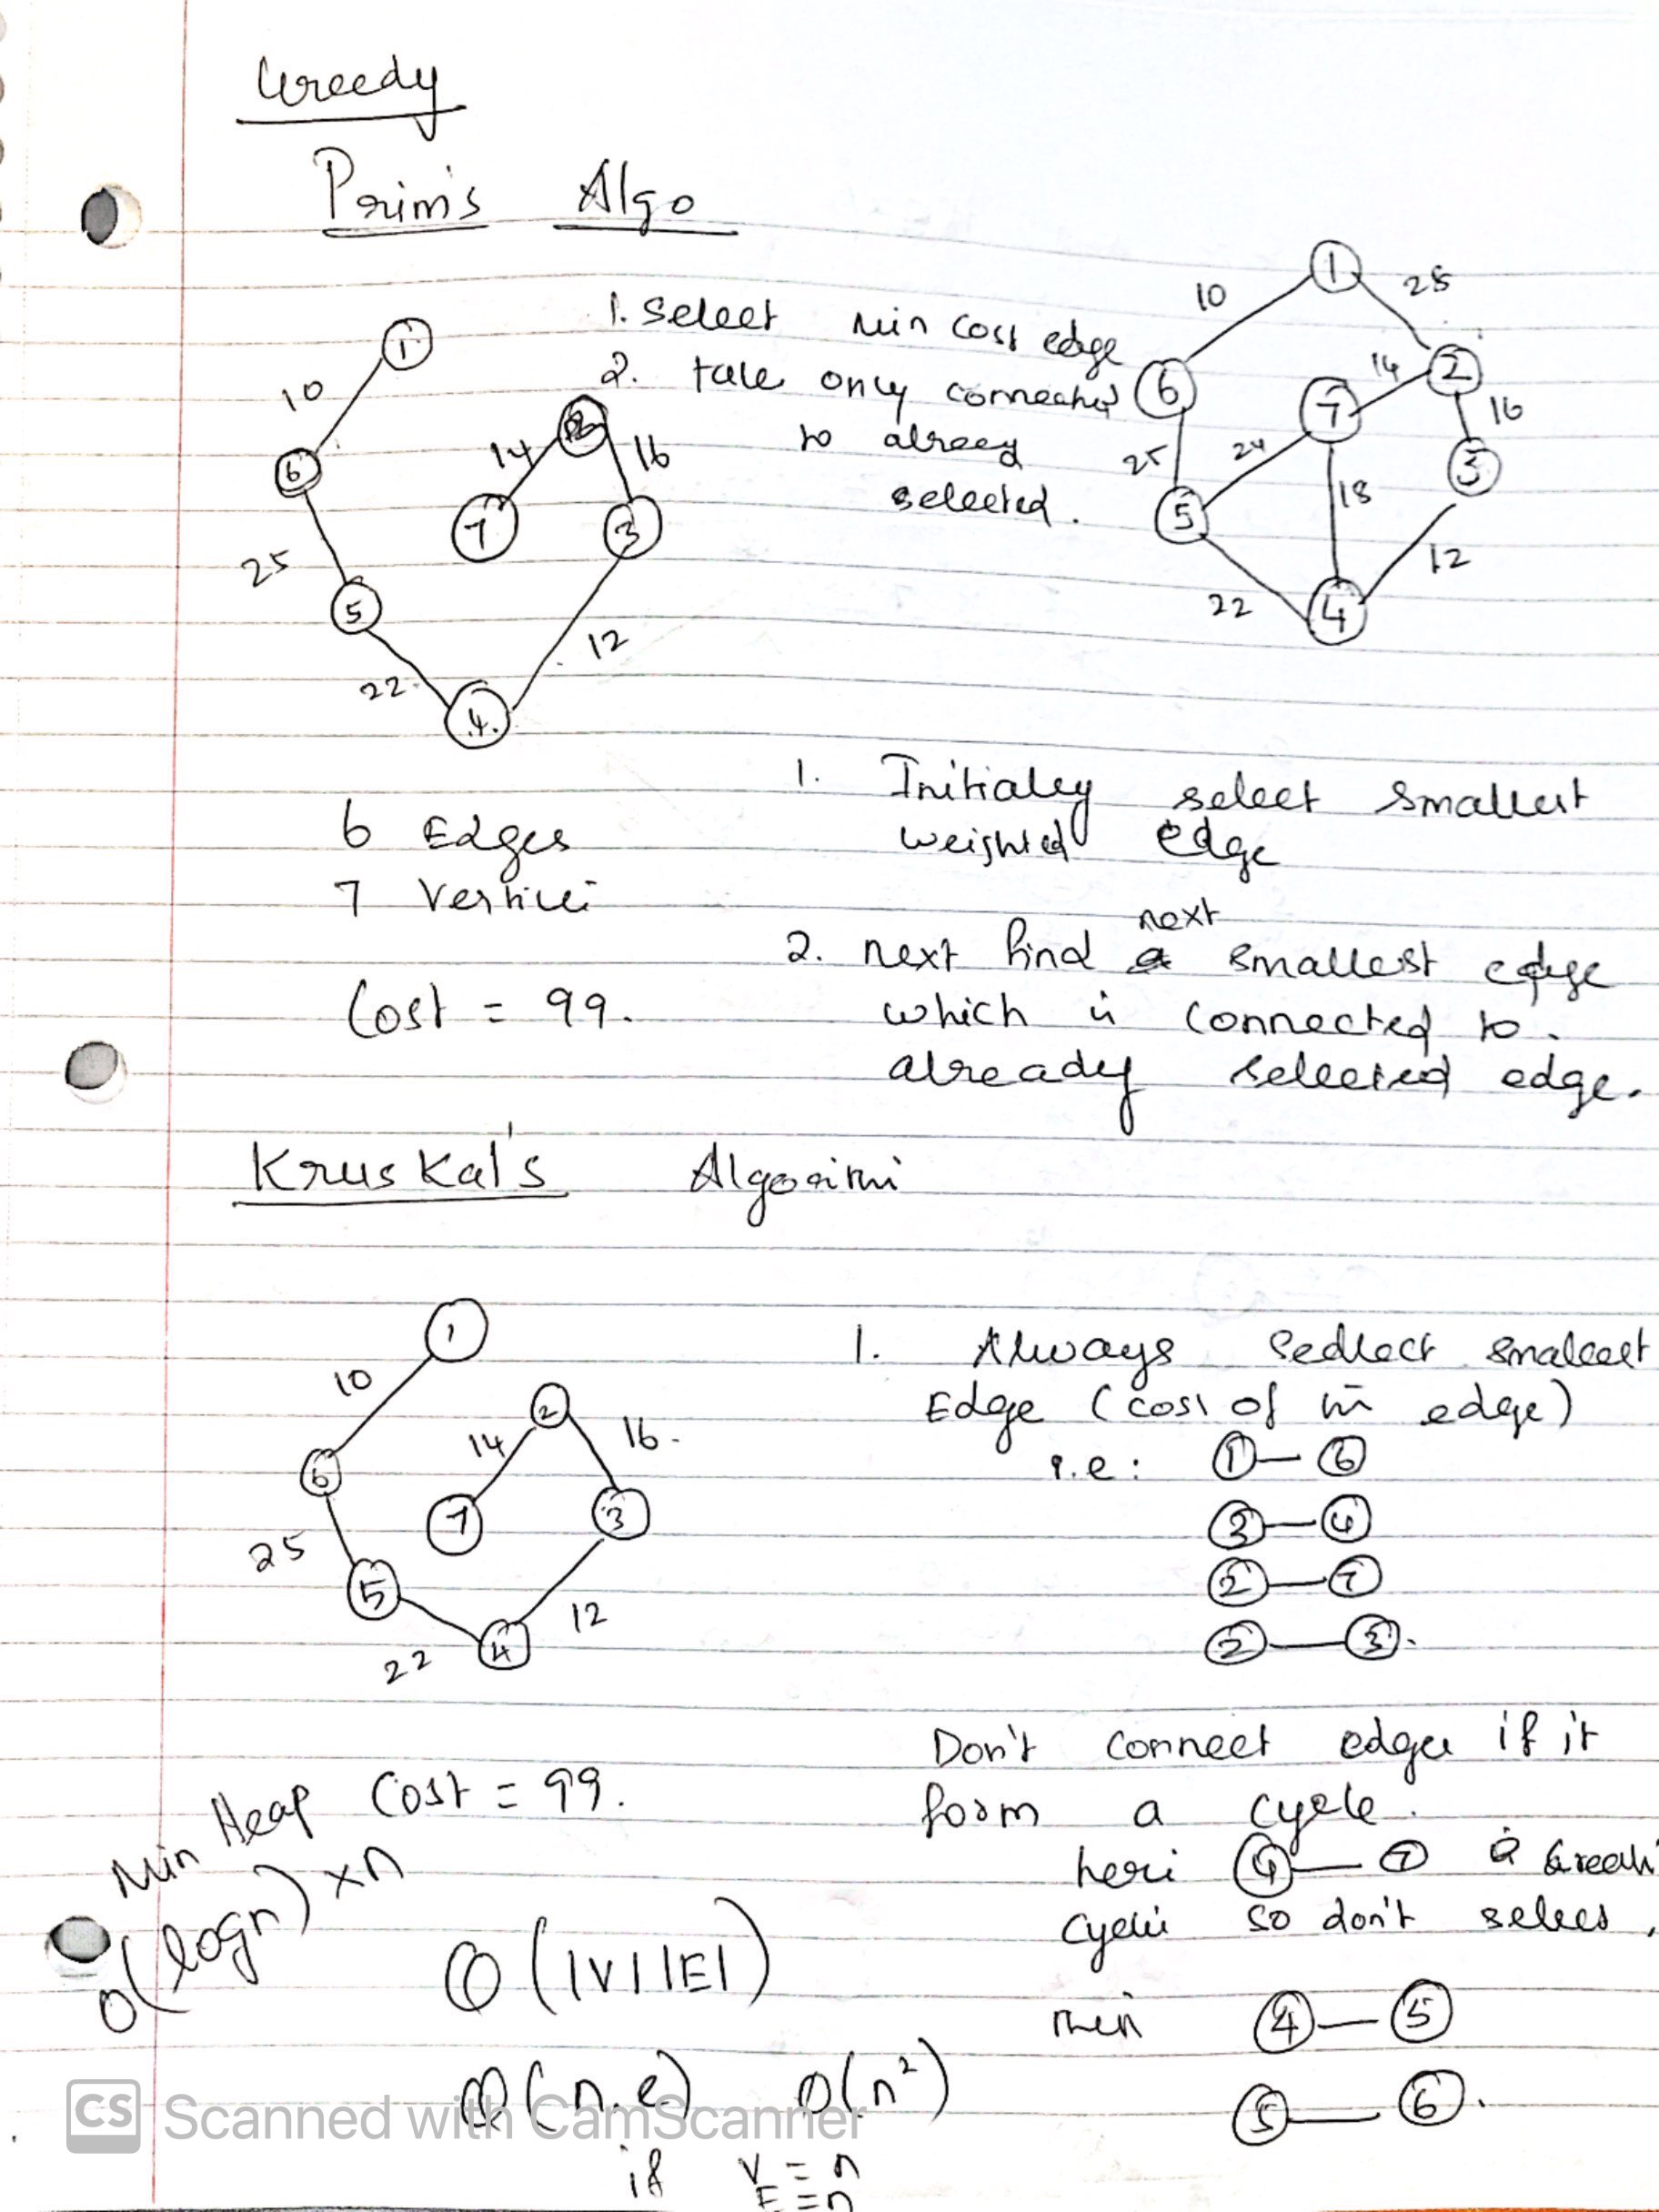 Greedy
Prim's Algo
1. Select min cost edge
2. take only connected
to alreey
selected.
1
10
6
14
2
16
7
3
25
5
12
22
4
1
10
28
6
14
2
7
16
25
24
3
5
18
12
22
4
6 Edges
7 Vertices
Cost = 99.
1. Initialey select smallest
weighted edge
2. next find next smallest edge
which is connected to
already selected edge.
Kruskal's Algorithm
1
10
2
14
16.
6
7
3
25
5
12
22
4
1. Always Sedlect smallest
Edge (cost of edge)
i.e: 1 — 6
3 — 4
2 — 7
2 — 3.
Don't connect edge if it
form a cycle.
here 4 — 7 is
cycle so don't select.
then 4 — 5
5 — 6.
Cost = 99.
Min Heap
O(logn) xn
O(|V||E|)
O(n.e) O(n²)
if V = n
E = n
CS Scanned with CamScanner